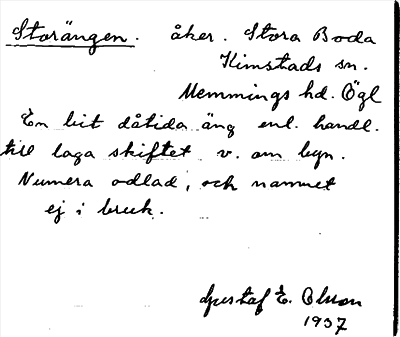 Storängen. åker. Stora Boda
Kimstads sn.
Memmings hd. Ögl
En bit dåtida äng enl. handl.
till laga skiftet v. om byn.
Numera odlad, och namnet
ej i bruk.
Gustaf E. Olsson
1937